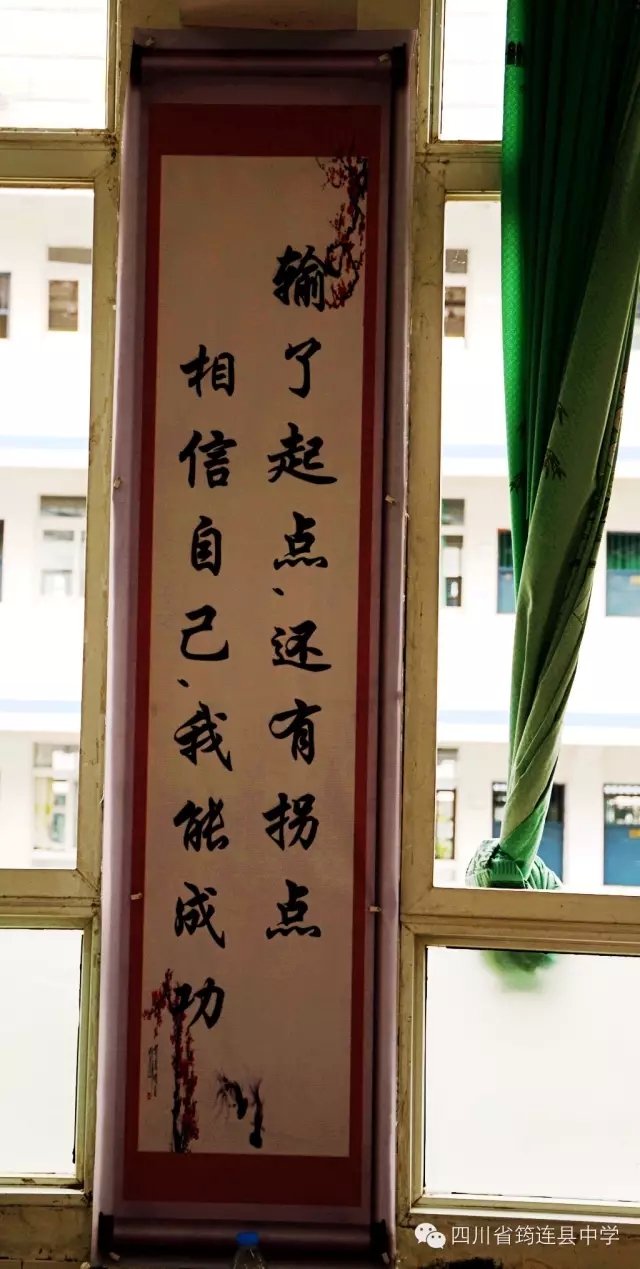 输了起点、还有拐点
相信自己、我能成功
四川省筠连县中学